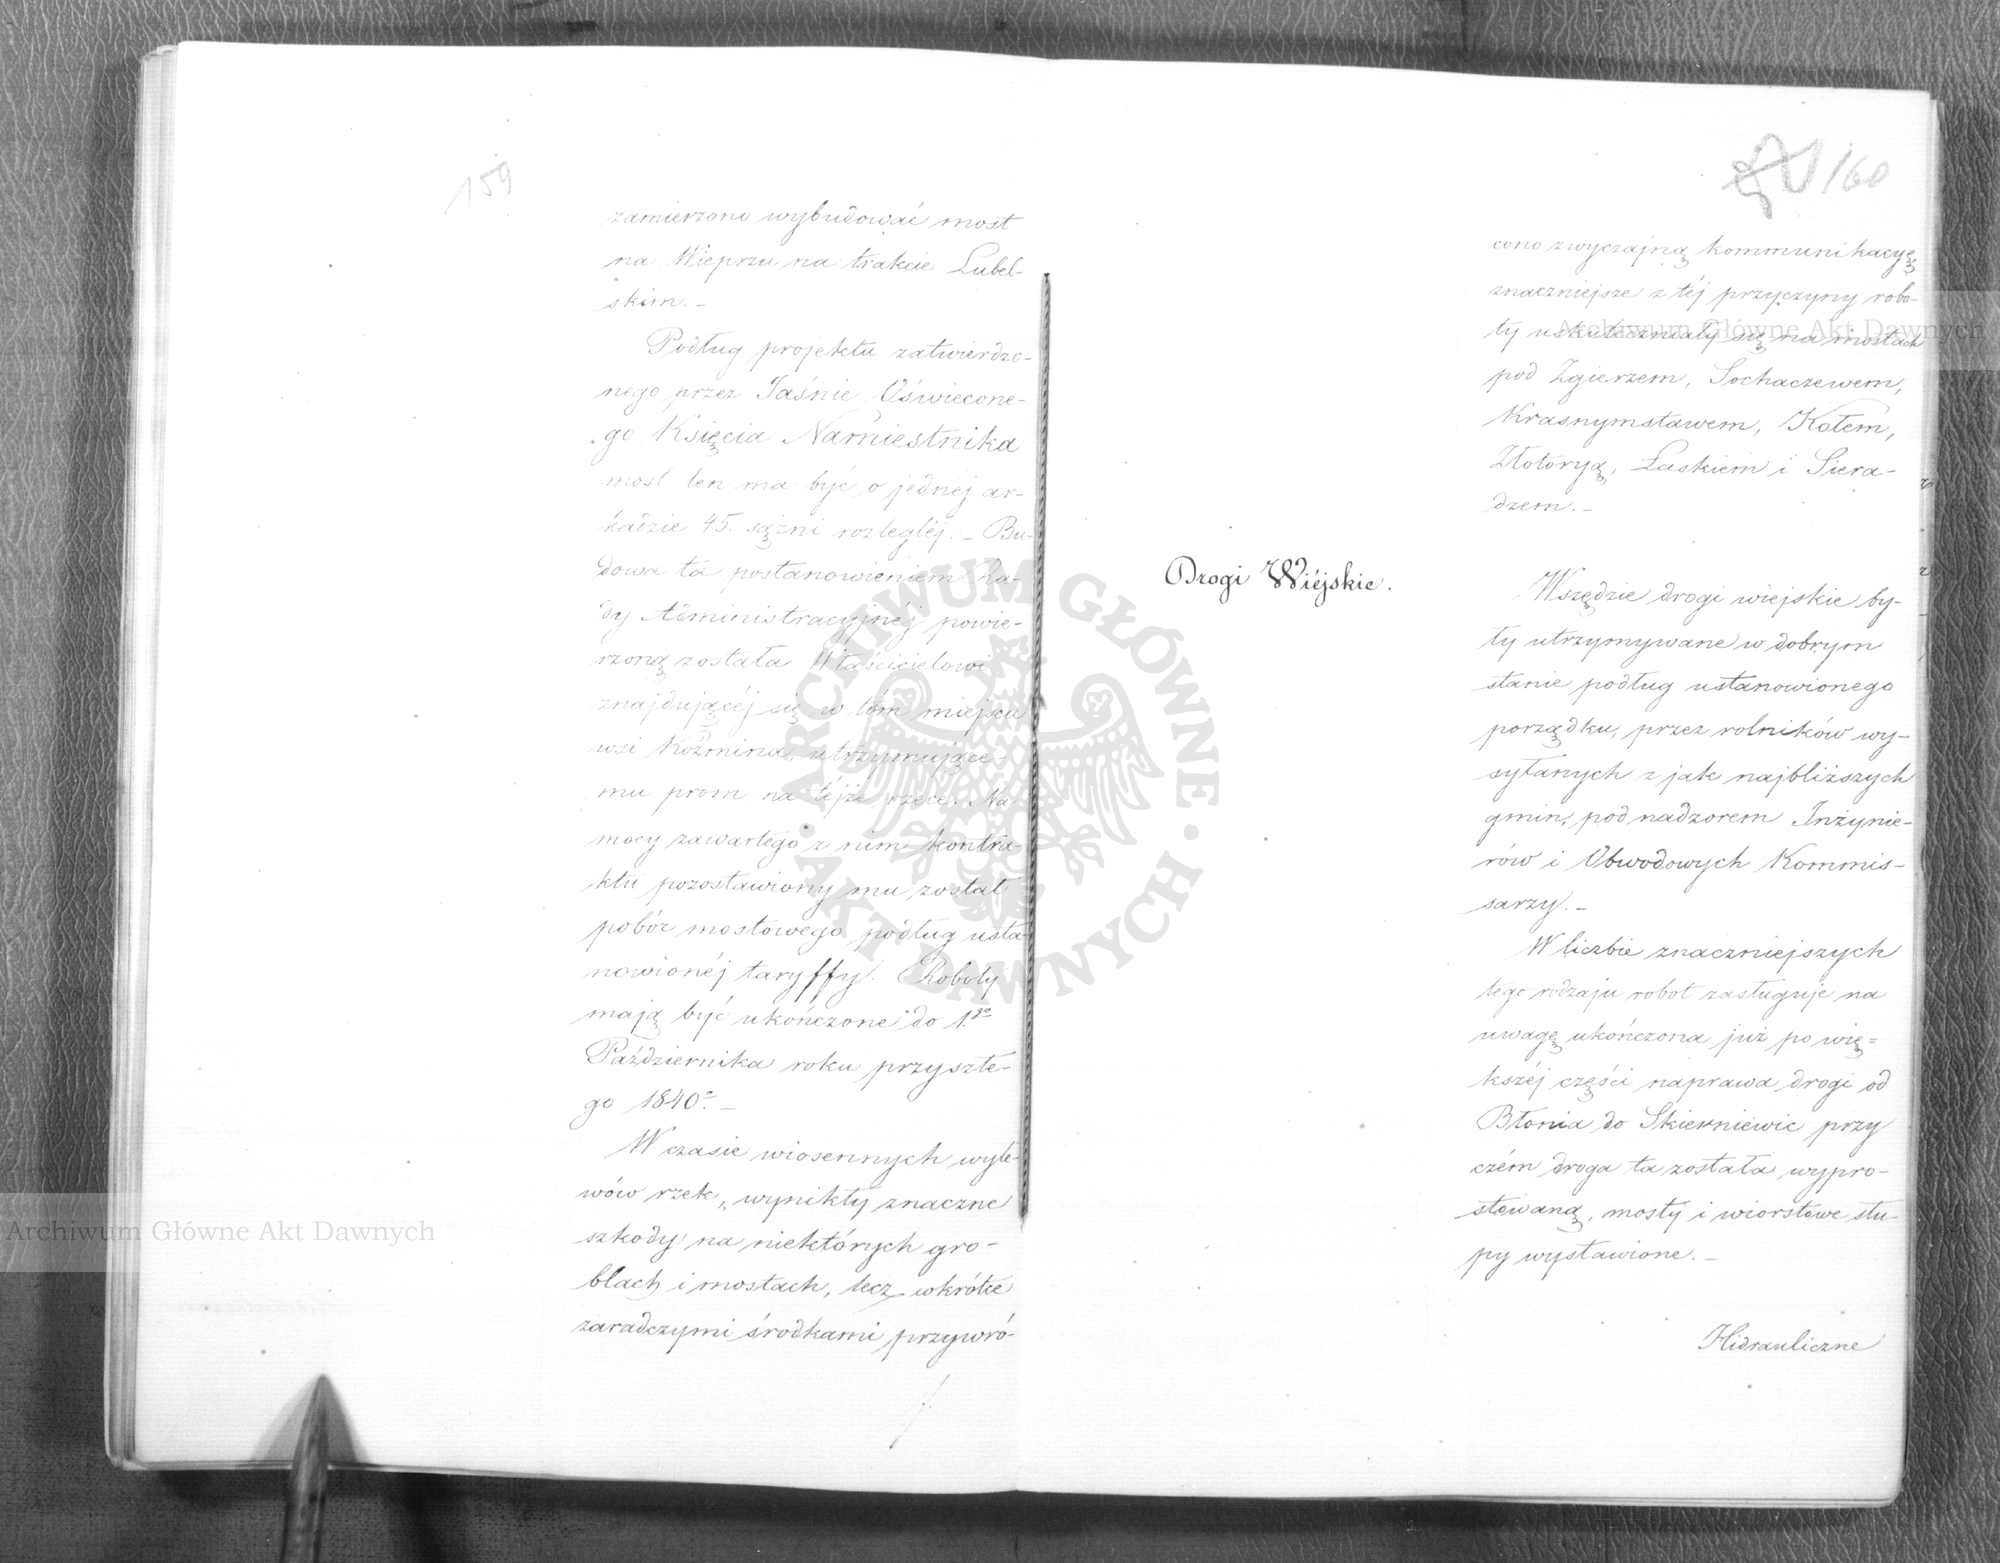 159
zamierzono wybudować most
na Wieprzu na trakcie Lubel-
skim. -
Podług projektu zatwierdzo-
nego przez Jaśnie Oświecone-
go Księcia Namiestnika
most ten ma być o jednéj ar-
kadzie 45. sążni rozległéj. - Bu-
dowa ta postanowieniem Ra-
dy Administracyjnéj powie-
rzoną została Właścicielowi
znajdującéj się w tém miejscu
wsi Koźmina, utrzymujące-
mu prom na téjże rzece. Na
mocy zawartego z nim kontra-
ktu pozostawiony mu został
pobór mostowego podług usta-
nowionéj taryffy. Roboty
mają być ukończone do 1.go
Października roku przyszłe-
go 1840. -
W czasie wiosennych wyle-
wów rzek, wynikły znaczne
szkody na niektórych gro-
blach i mostach, lecz wkrótce
zaradczymi środkami przywró-
160
cono zwyczajną kommunikacyę;
znaczniejsze z téj przyczyny robo-
ty uskuteczniały się na mostach
pod Zgierzem, Sochaczewem,
Krasnymstawem, Kołem,
Złotoryą, Łaskiem i Siera-
dzem. -
Drogi Wiéjskie.
Wszędzie drogi wiejskie by-
ły utrzymywane w dobrym
stanie podług ustanowionego
porządku, przez rolników wy-
syłanych z jak najbliższych
gmin, pod nadzorem Inżynie-
rów i Obwodowych Kommis-
sarzy. -
W liczbie znaczniejszych
tego rodzaju robot zasługuje na
uwagę ukończona już po wię=
kszéj części naprawa drogi od
Błonia do Skierniewic przy
czém droga ta została wypro-
stowaną, mosty i wiorstowe słu-
py wystawione. -
Hidrauliczne
Archiwum Główne Akt Dawnych
Archiwum Główne Akt Dawnych
ARCHIWUM GŁÓWNE · AKT DAWNYCH ·